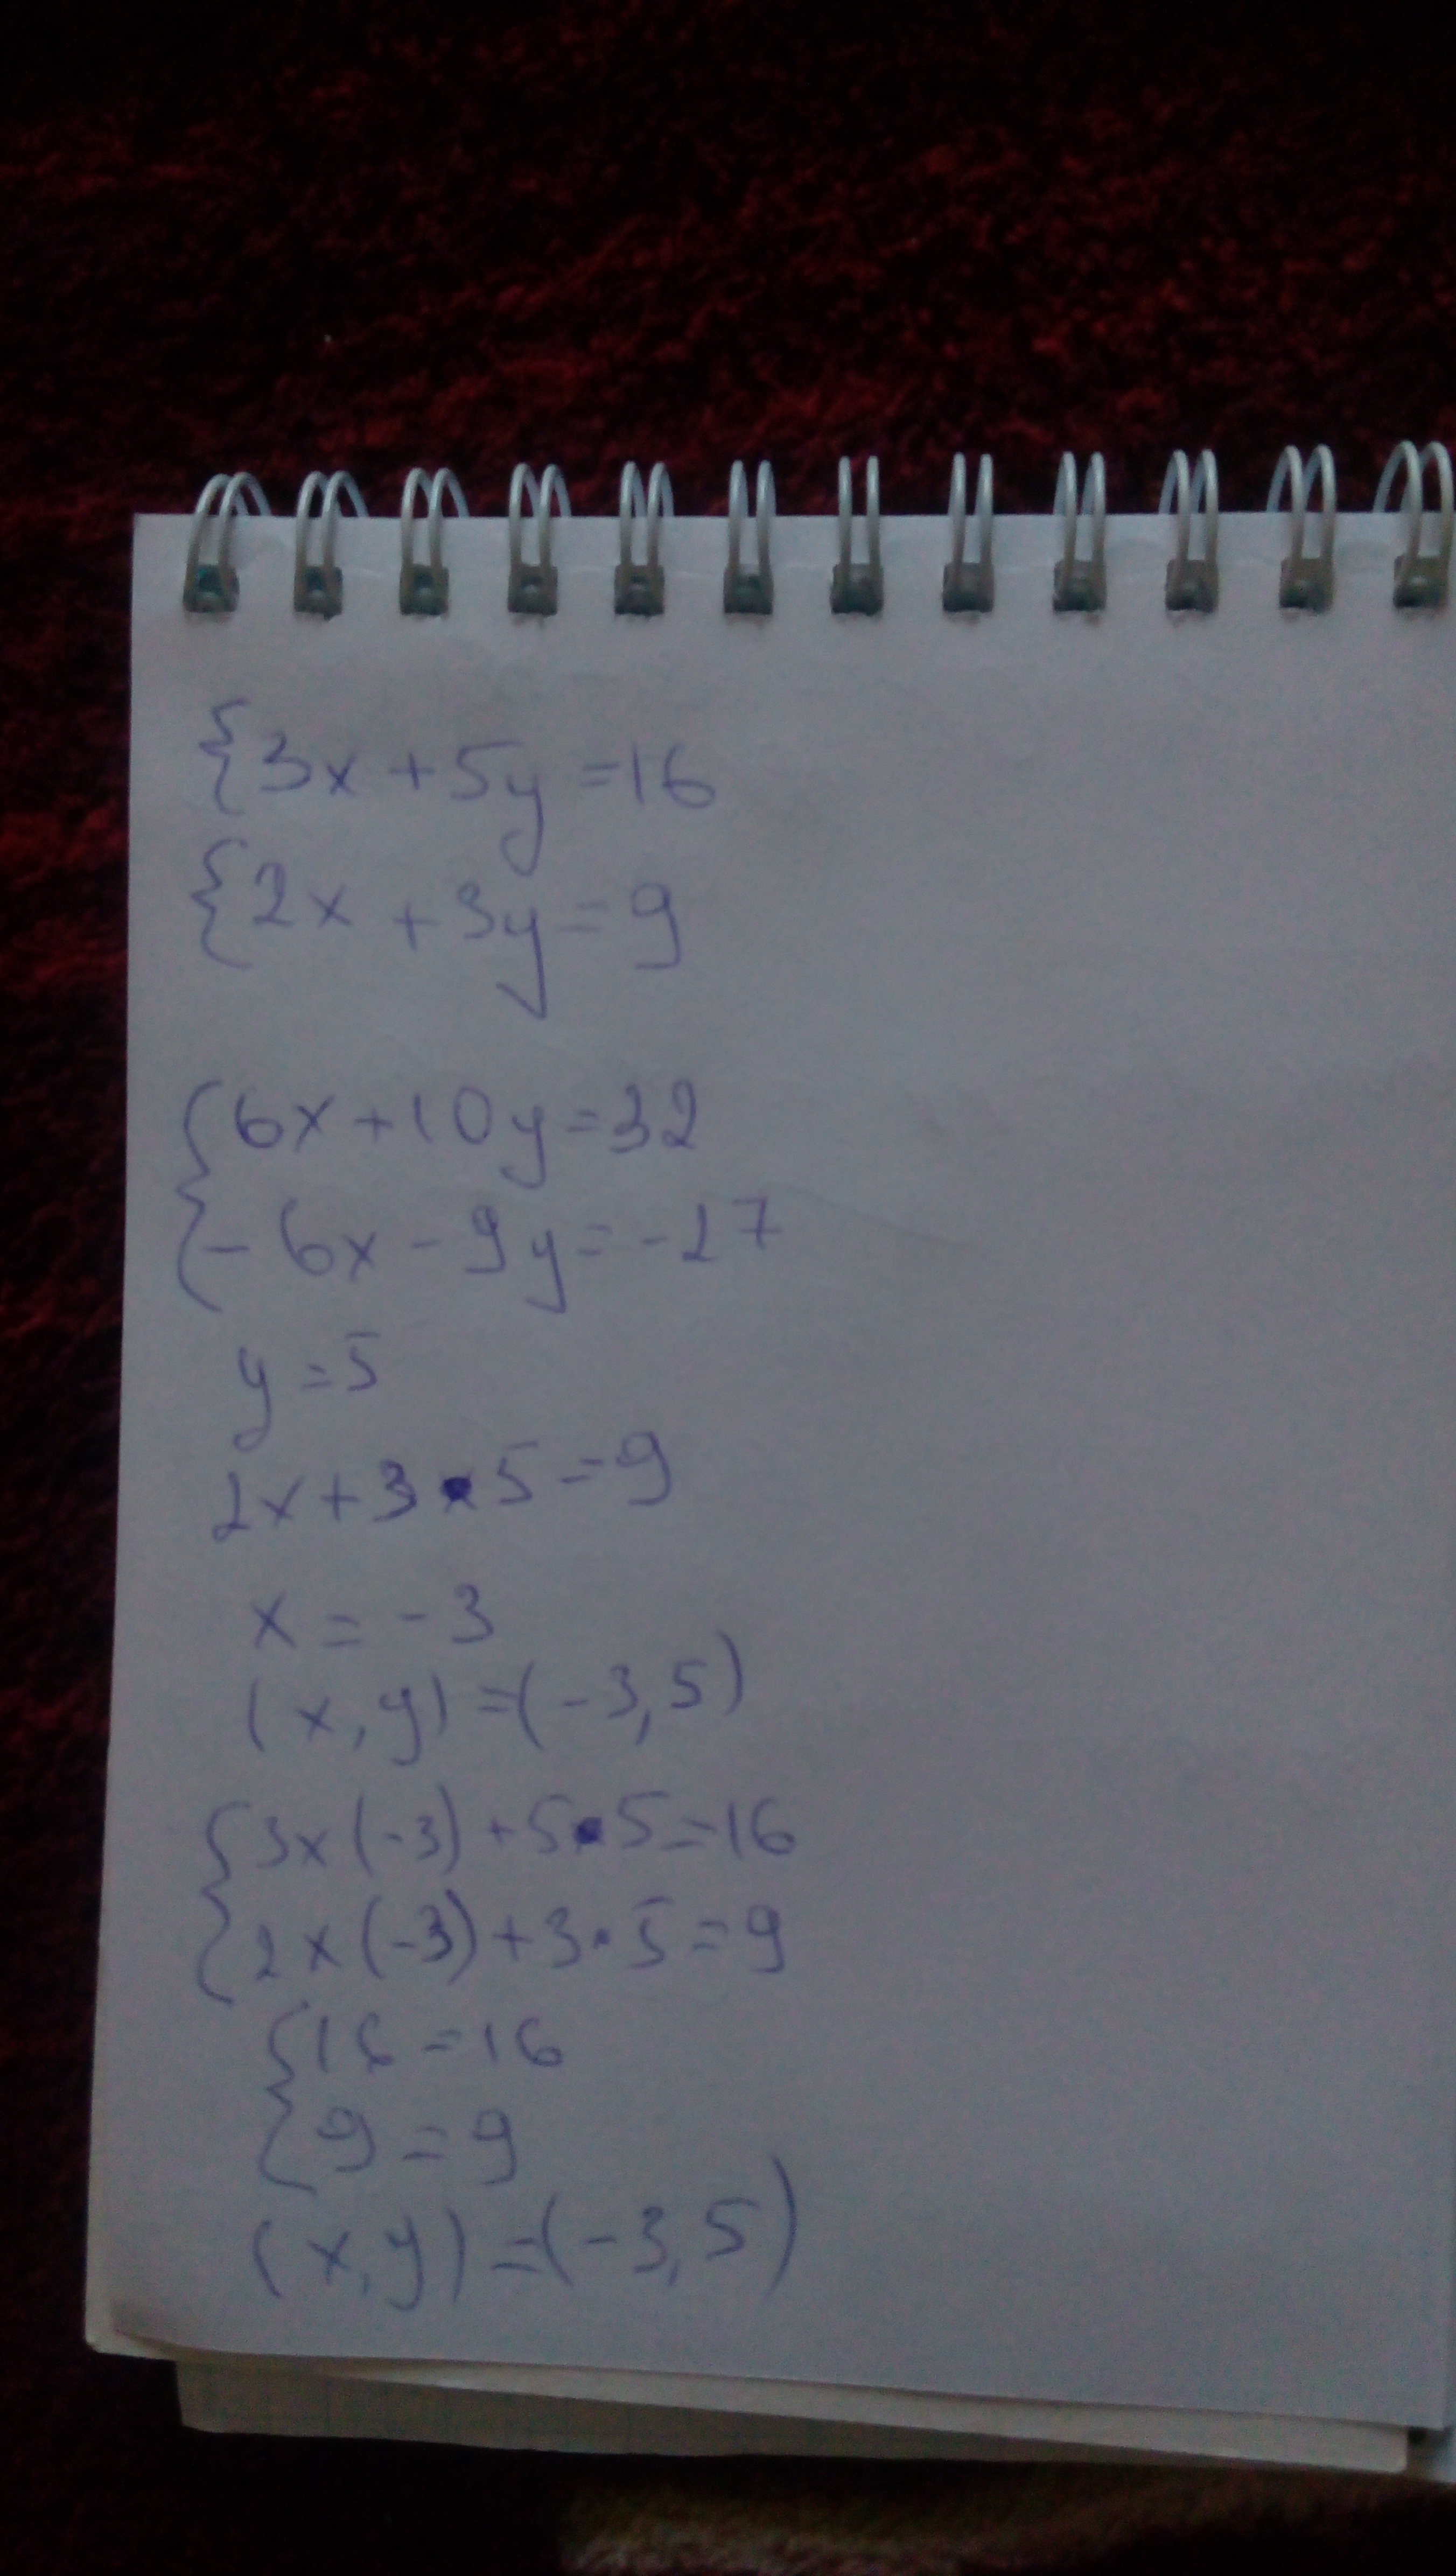 {3x + 5y = 16
{2x + 3y = 9
{6x + 10y = 32
- 6x - 9y = -27
y = 5
2x + 3 • 5 = 9
x = -3
(x, y) = (-3, 5)
{3x(-3) + 5 • 5 = 16
2x(-3) + 3 • 5 = 9
{16 = 16
9 = 9
(x, y) = (-3, 5)